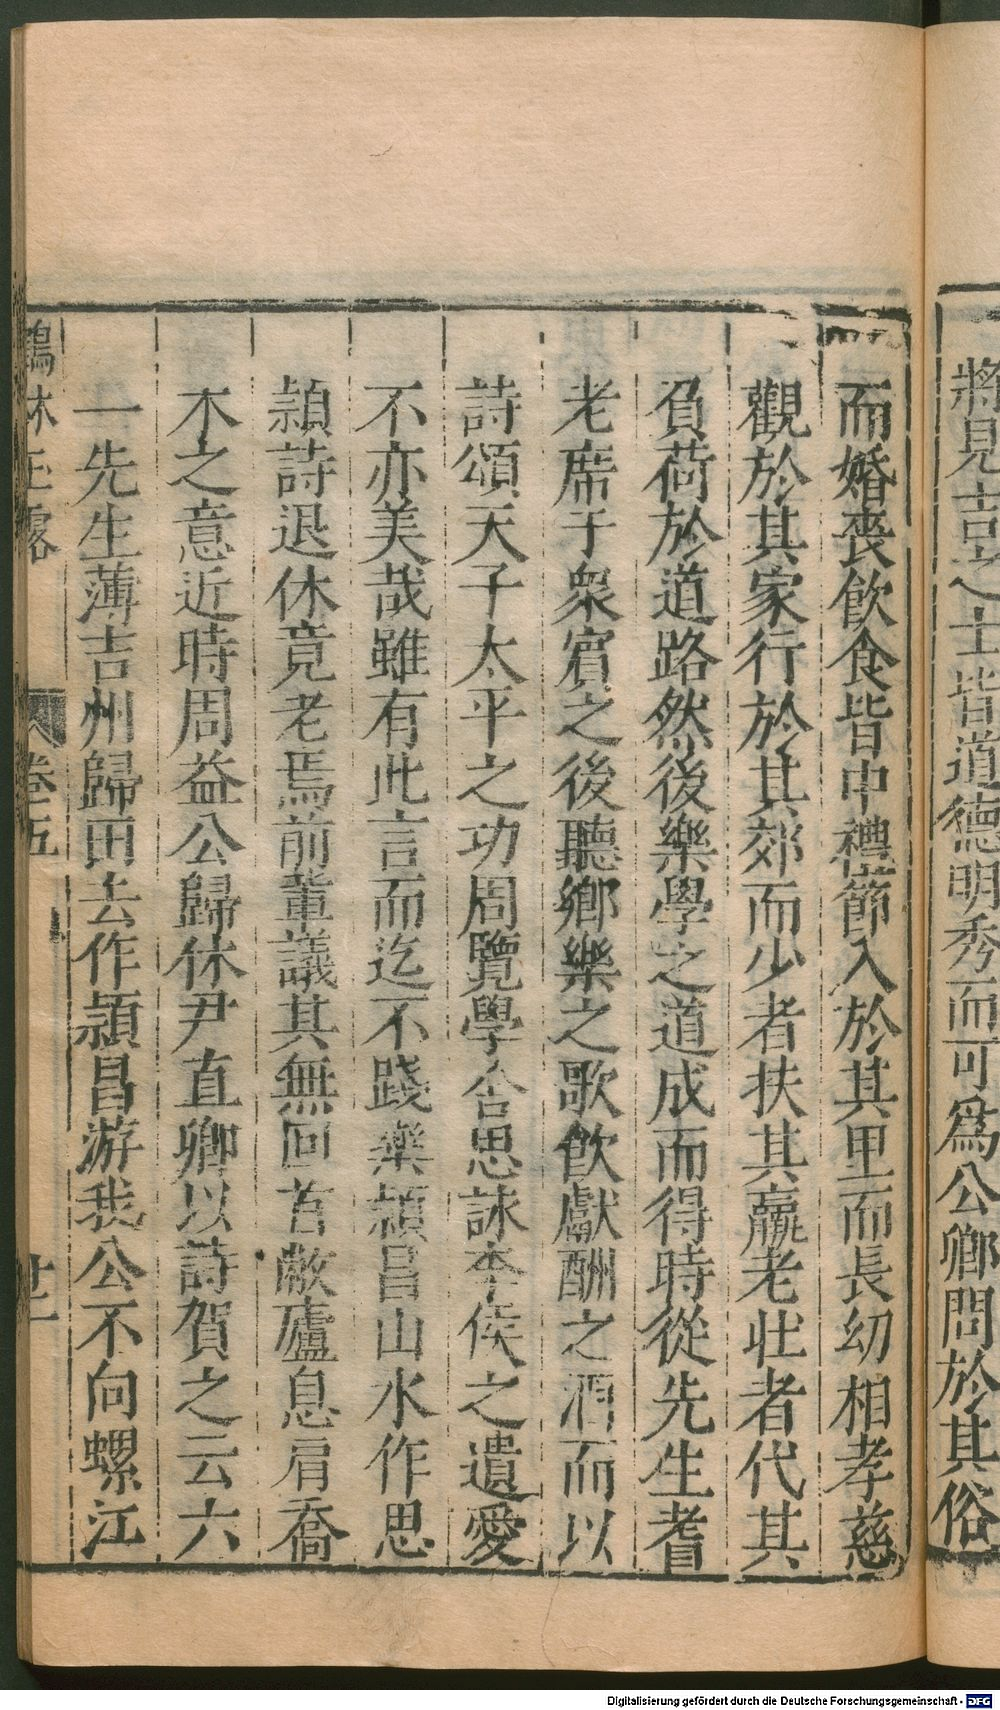 將見吉之士皆道德明秀而可爲公卿問於其俗
而婚喪飲食皆中禮節入於其里而長幼相孝慈
觀於其家行於其郊而少者扶其羸老壯者代其
負荷於道路然後樂學之道成而得時從先生耆
老席于衆賓之後聽鄉樂之歌飲獻酬之酒而以
詩頌天子太平之功周覽學舍思詠李侯之遺愛
不亦美哉雖有此言而迄不踐樂潁昌山水作思
潁詩退休竟老焉前輩議其無回首敝廬息肩喬
木之意近時周益公歸休尹直卿以詩賀之云六
一先生薄吉州歸田去作潁昌游我公不向螺江
鶴林玉露
卷五
廿二
Digitalisierung gefördert durch die Deutsche Forschungsgemeinschaft - DFG